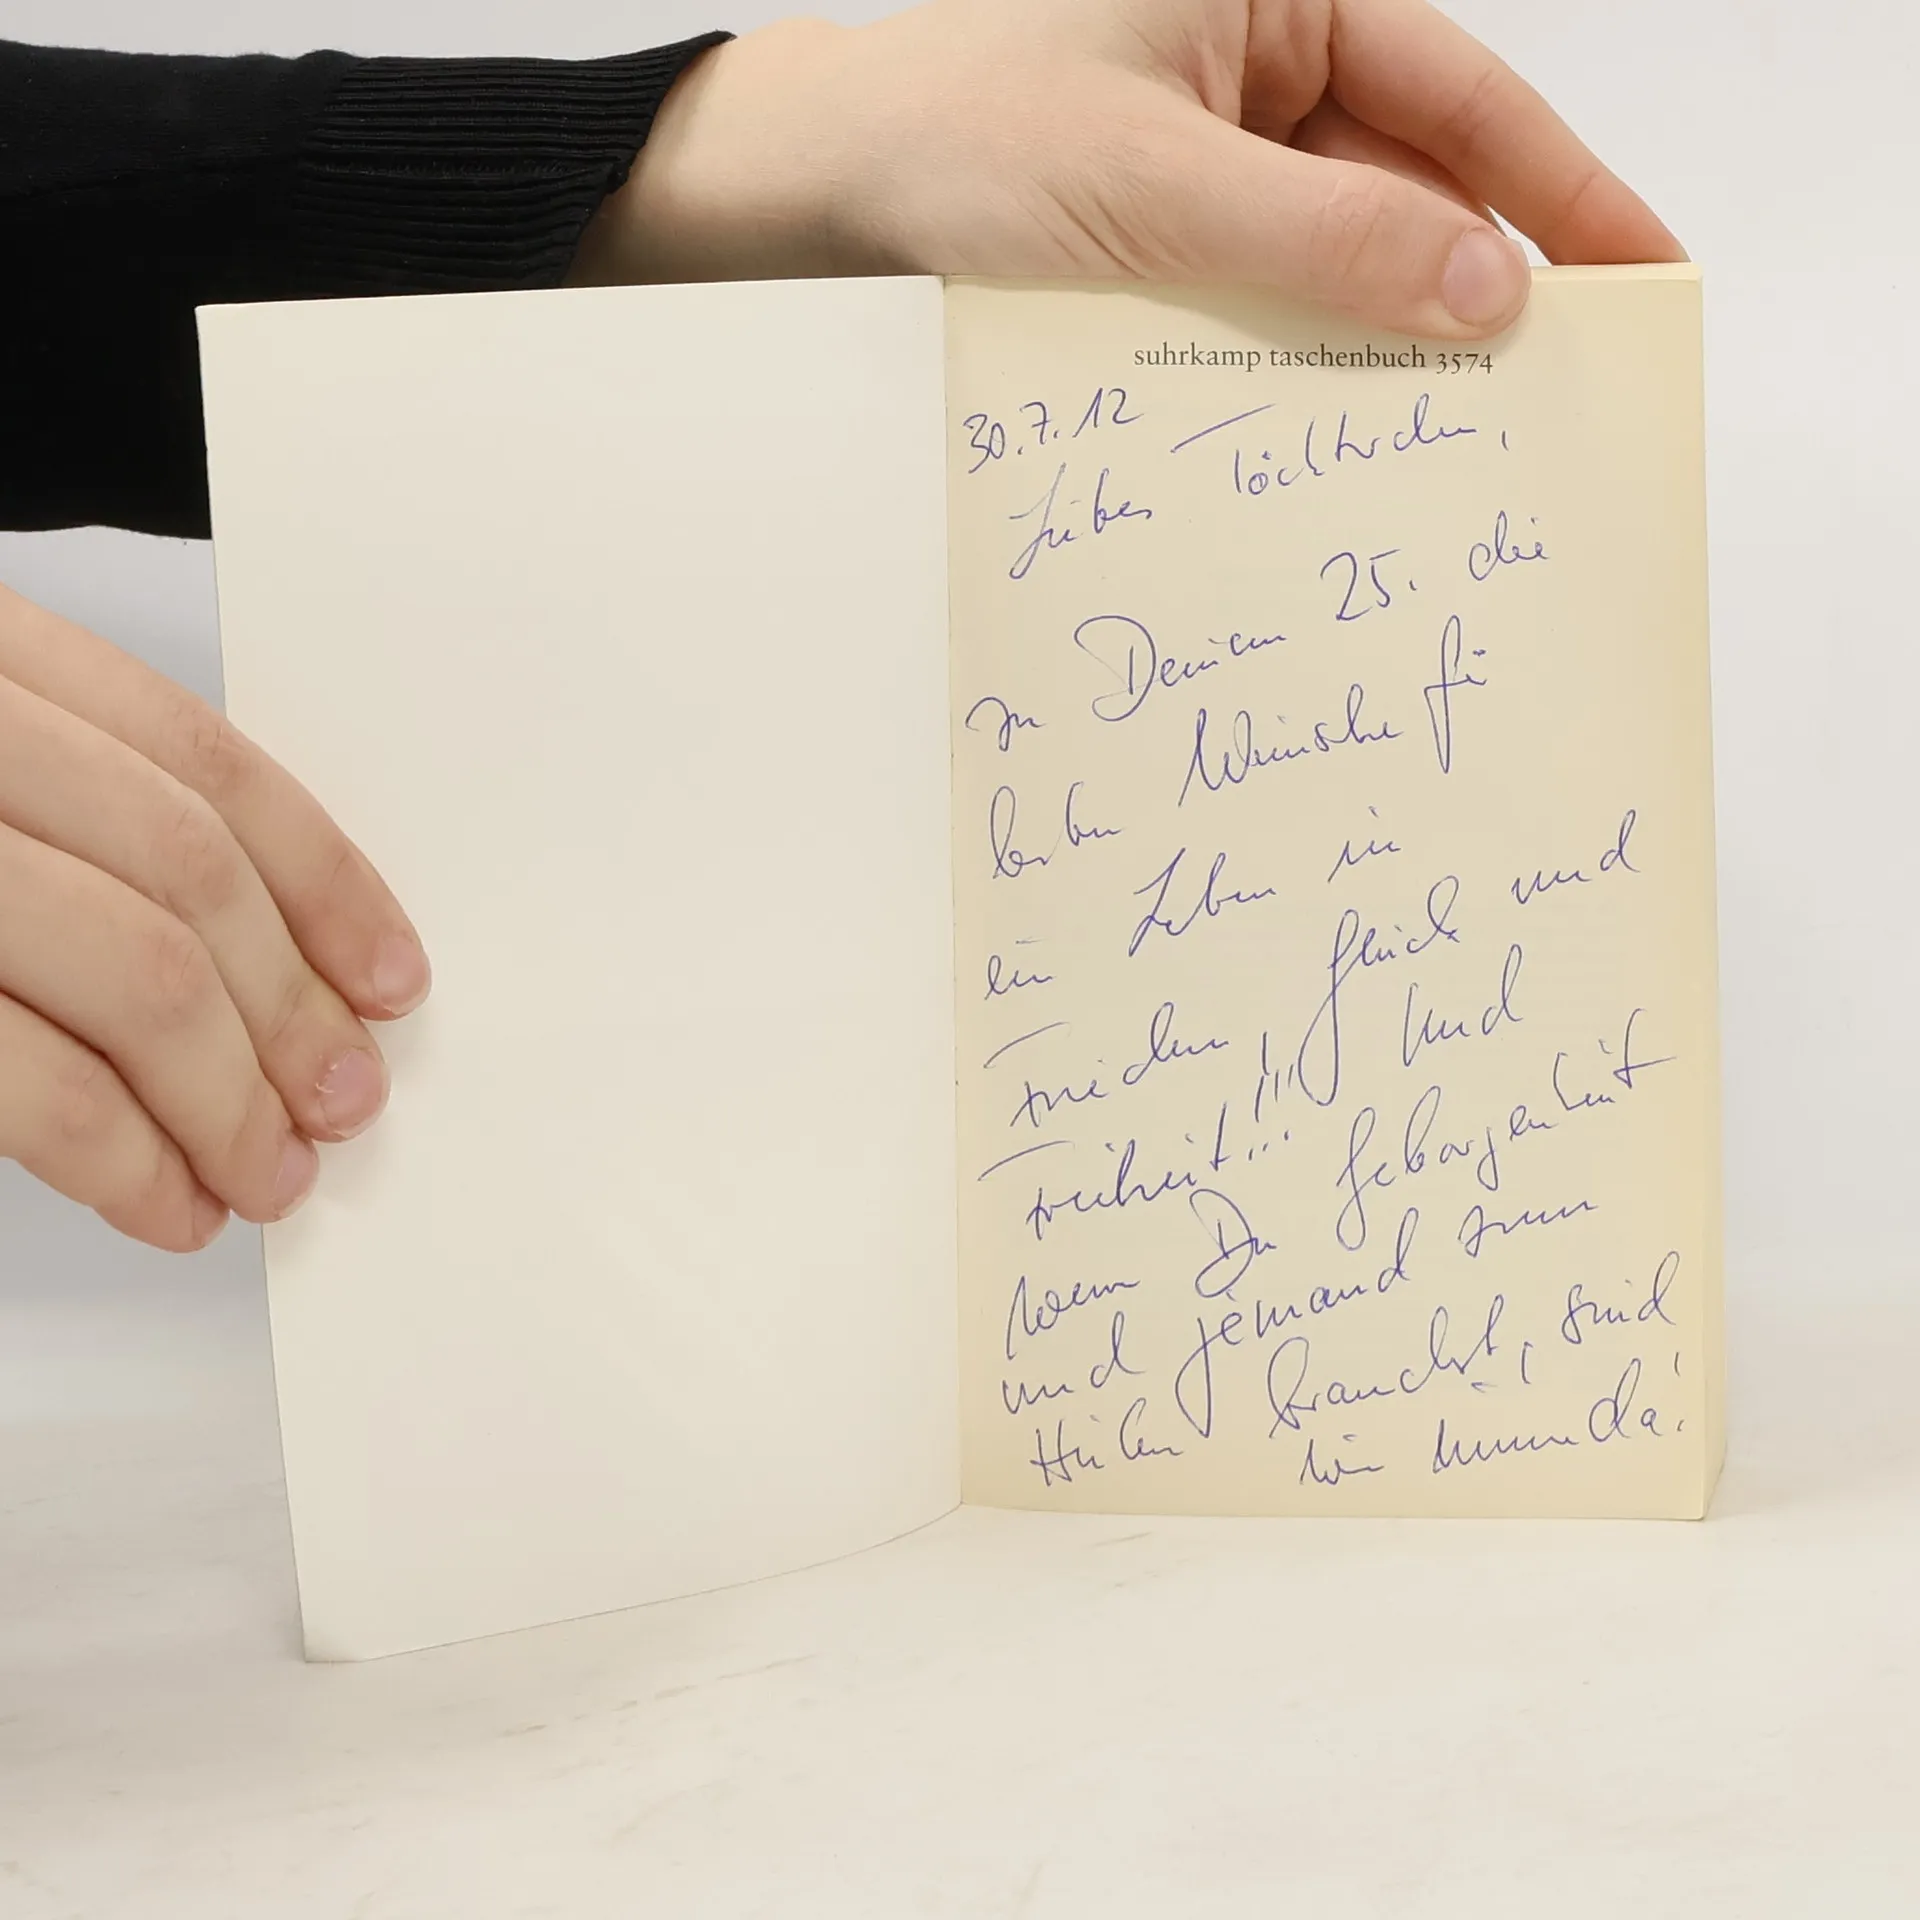 suhrkamp taschenbuch 3574
30.7.12
Liebes Töchterchen,
zu Deinem 25. die
besten Wünsche für
ein Leben in
Frieden, Glück und
Freiheit!!! Und
wenn Du Geborgenheit
und jemand zum
brauchst, sind
wir immer da!